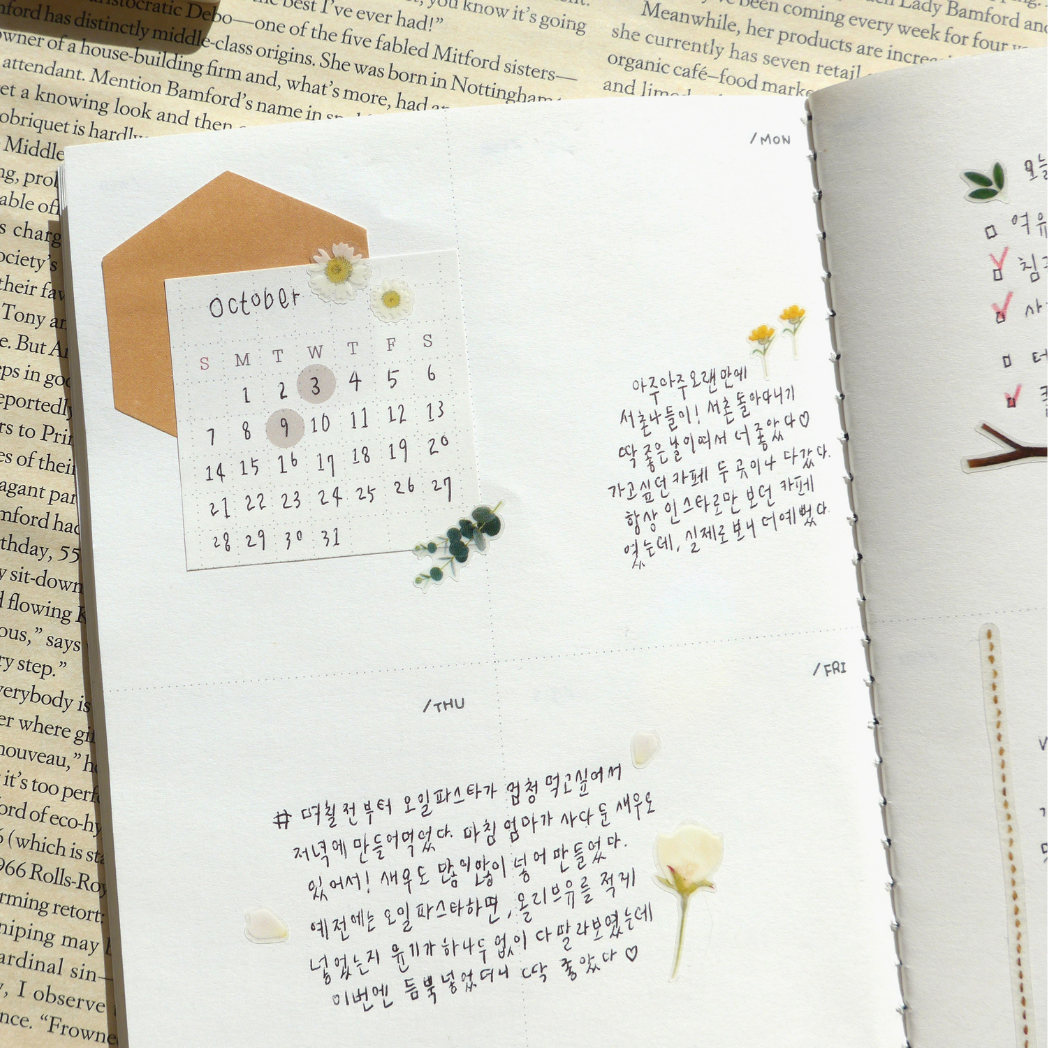 aristocratic Debo—one of the five fabled Mitford sisters—
the best I've ever had!"
you know it's going
nford has distinctly middle-class origins. She was born in Nottingham
owner of a house-building firm and, what's more, had
attendant. Mention Bamford's name in
get a knowing look and then
obriquet is hardly
Middle
been coming every week for four
Lady Bamford and
Meanwhile, her products are
she currently has seven retail
organic café–food
and
/MON
October
S M T W T F S
1 2 3 4 5 6
7 8 9 10 11 12 13
14 15 16 17 18 19 20
21 22 23 24 25 26 27
28 29 30 31
아주아주 오랜만에
서촌나들이! 서촌 돌아다니기
딱 좋은 날이여서 너 좋았다♡
가고싶던 카페 두 곳이나 다갔다.
항상 인스타로만 보던 카페
였는데, 실제로보니 더예뻤다.
/THU
/FRI
# 며칠 전부터 오일파스타가 엄청 먹고싶어서
저녁에 만들어먹었다. 마침 엄마가 사다 둔 새우도
있어서! 새우도 많이많이 넣어 만들었다.
예전에는 오일 파스타하면, 올리브유를 적게
넣었는지 윤기가 하나두 없이 다 말라보였는데
이번엔 듬뿍 넣었더니 딱 좋았다 ♡
able
s
society's
their
Tony
e. But
reportedly
rs to
es of their
mford had
thday, 55
y sit-down
d flowing
ous," says
ry step."
verybody is
er where
nouveau,"
it's too
ord of eco-
(which is
966 Rolls-
rming retort:
niping may
ardinal sin—
, I observe
nce. "Frowne